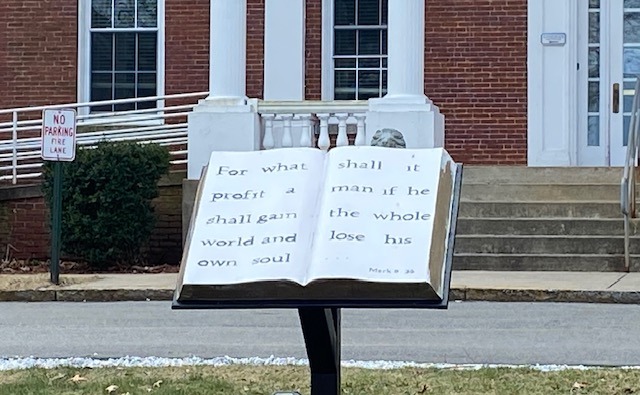 NO
PARKING
FIRE
LANE
For what shall it
profit a man if he
shall gain the whole
world and lose his
own soul . . .
Mark 8 36